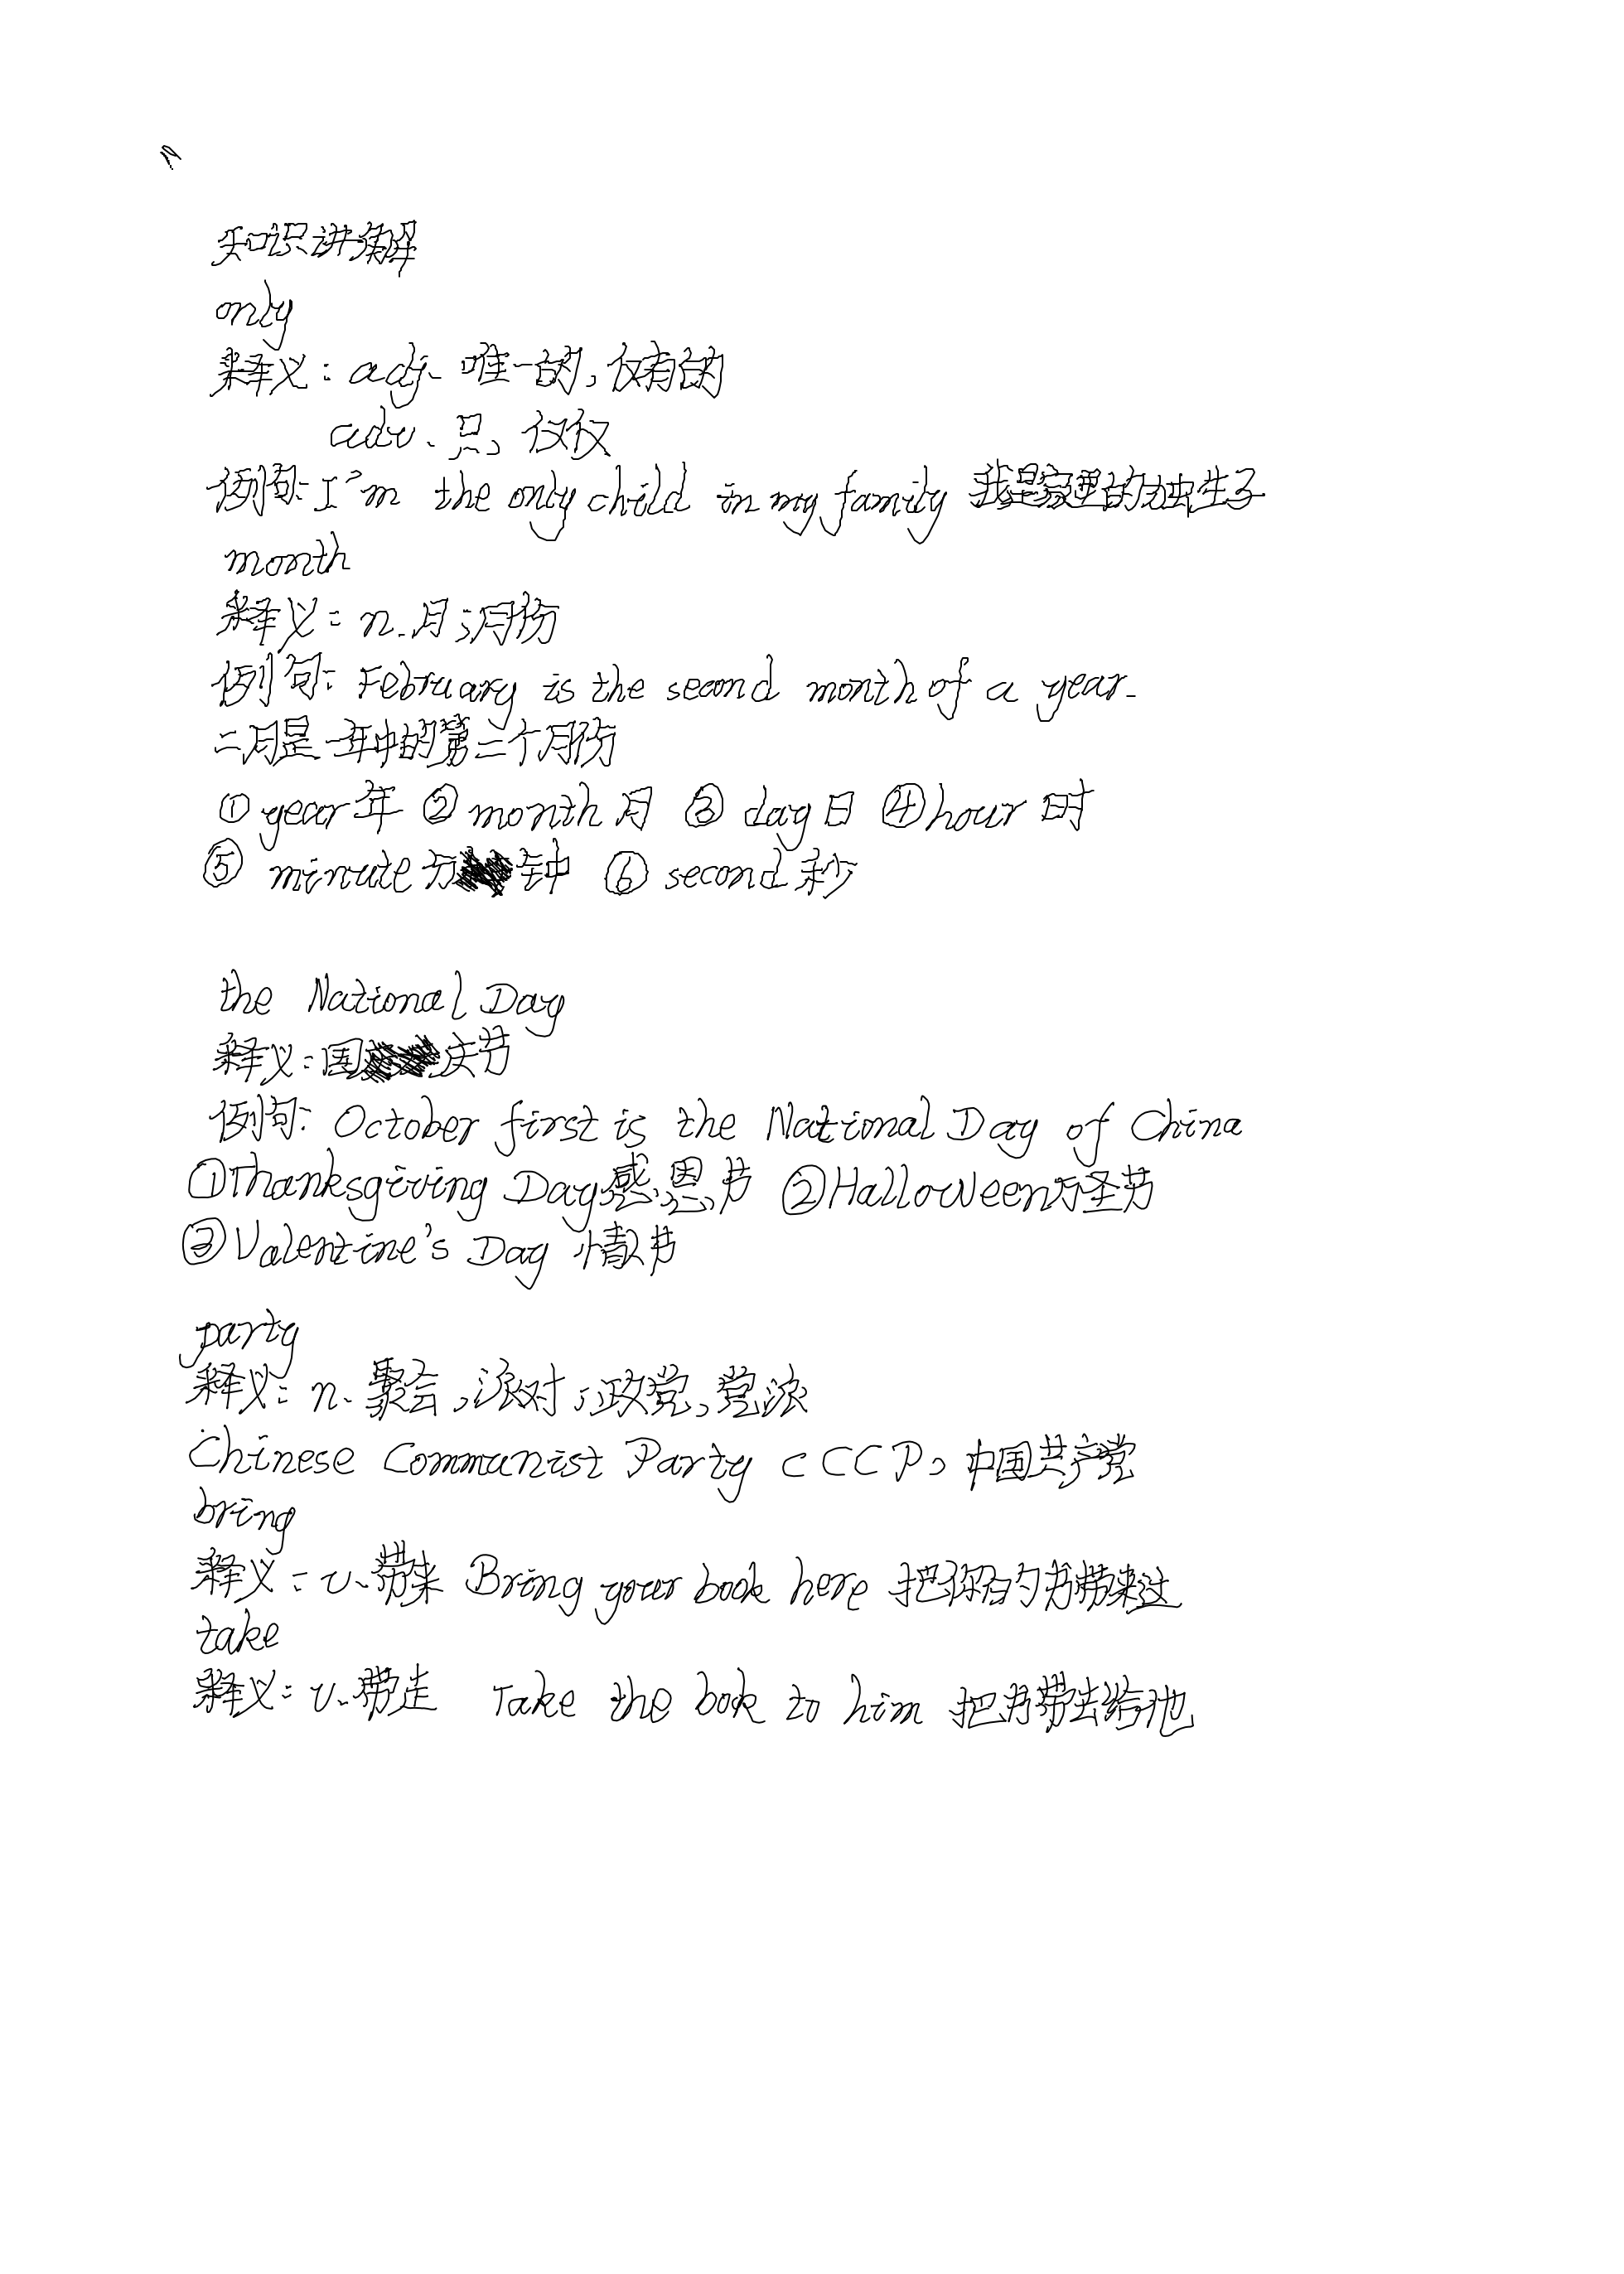 知识讲解
only
释义：adj. 唯一的，仅有的
adv. 只，仅仅
例句：I'm the only child in my family 我是家里的独生子
month
释义：n. 月；月份
例句：February is the second month of a year.
二月是一年中的第二个月份
① year 年 ② month 月 ③ day 日 ④ hour 时
⑤ minute 分钟 ⑥ second 秒
the National Day
释义：国庆节
例句：October first is the National Day of China
① Thanksgiving Day 感恩节 ② Halloween 万圣节
③ Valentine's Day 情人节
party
释义：n. 聚会，派对；政党，党派
Chinese Communist Party (CCP) 中国共产党
bring
释义：v. 带来 Bring your book here 把你的书带来过
take
释义：v. 带走 Take the book to him 把书带去给他